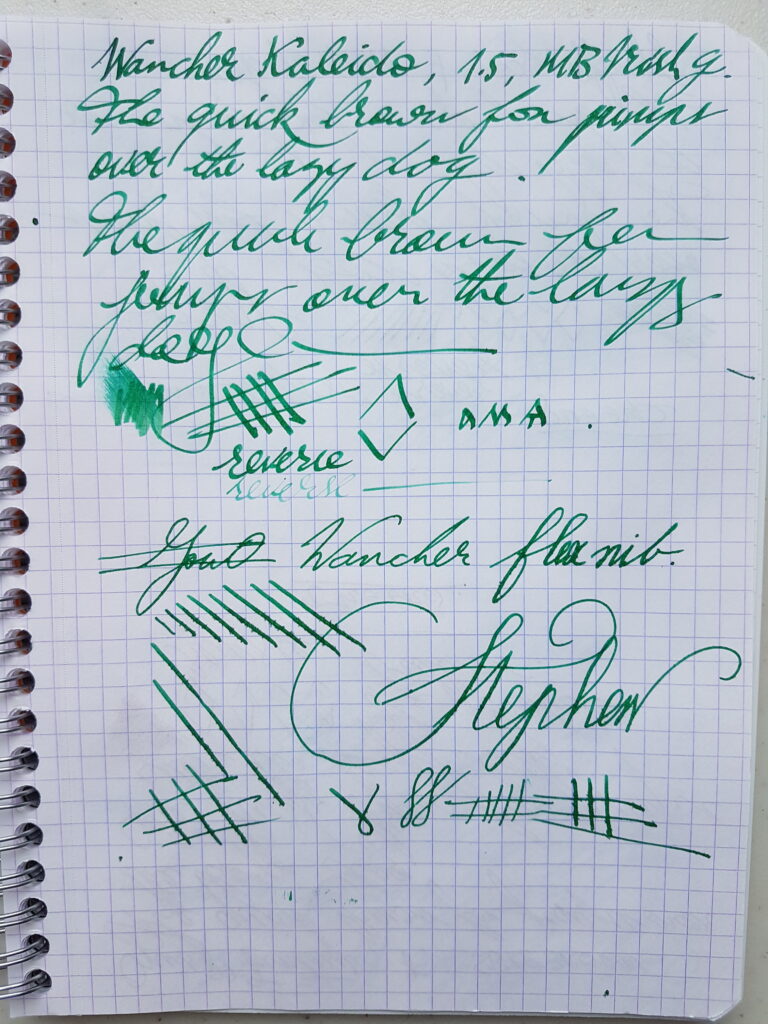 Wancher Kaleido, 1.5, MB Irish g.
The quick brown fox jumps
over the lazy dog.
The quick brown fox
jumps over the lazy
dog
reverse
reverse
Wancher flex nib.
Stephen